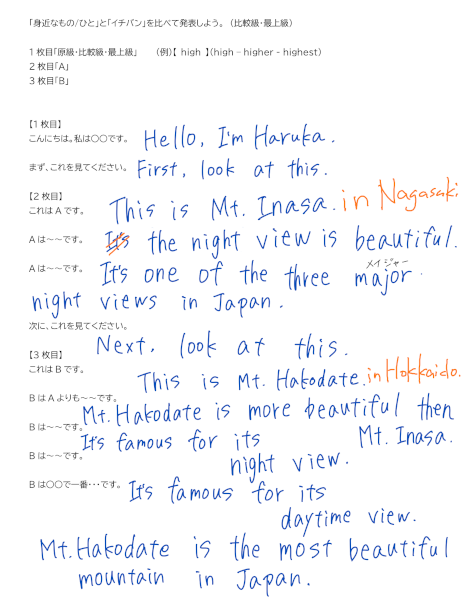 「身近なもの/ひと」と「イチバン」を比べて発表しよう。（比較級・最上級）
1枚目「原級・比較級・最上級」　（例）【 high 】（high – higher - highest）
2枚目「A」
3枚目「B」
【1枚目】
こんにちは。私は○○です。 Hello, I'm Haruka.
まず、これを見てください。 First, look at this.
【2枚目】
これは A です。 This is Mt. Inasa. in Nagasaki
A は～～です。 It's the night view is beautiful.
メイジャー
A は～～です。 It's one of the three major
night views in Japan.
次に、これを見てください。
Next, look at this.
【3枚目】
これは B です。 This is Mt. Hakodate. in Hokkaido.
B は A よりも～～です。
Mt. Hakodate is more beautiful then
Mt. Inasa.
B は～～です。 It's famous for its
night view.
B は～～です。
B は○○で一番・・・です。 It's famous for its
daytime view.
Mt. Hakodate is the most beautiful
mountain in Japan.